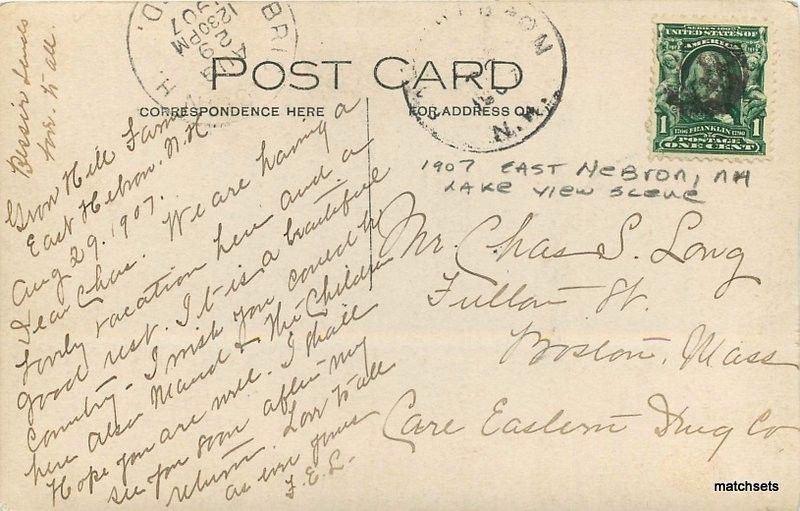 Bessie sends
love to all.
BRI
AUG 29
12 30 PM
1907
N.H.
N.H.
POST CARD
CORRESPONDENCE HERE
FOR ADDRESS ON
SERIES 1902
UNITED STATES OF
AMERICA
1 1706 FRANKLIN 1790 1
POSTAGE
ONE CENT
1907 EAST HEBRON, NH
LAKE VIEW SCENE
Hill Farm
East Hebron, N.H.
Aug 29. 1907.
Dear Chas. We are having a
lovely vacation here and a
good rest. It is a beautiful
Country - I wish you could be
here also Maud & the Children
Hope you are well. I shall
see you soon after my
return. Love to all
as ever yours
F.E.L.
Mr. Chas S. Long
Fulton St.
Boston, Mass
Care Eastern Drug Co
matchsets